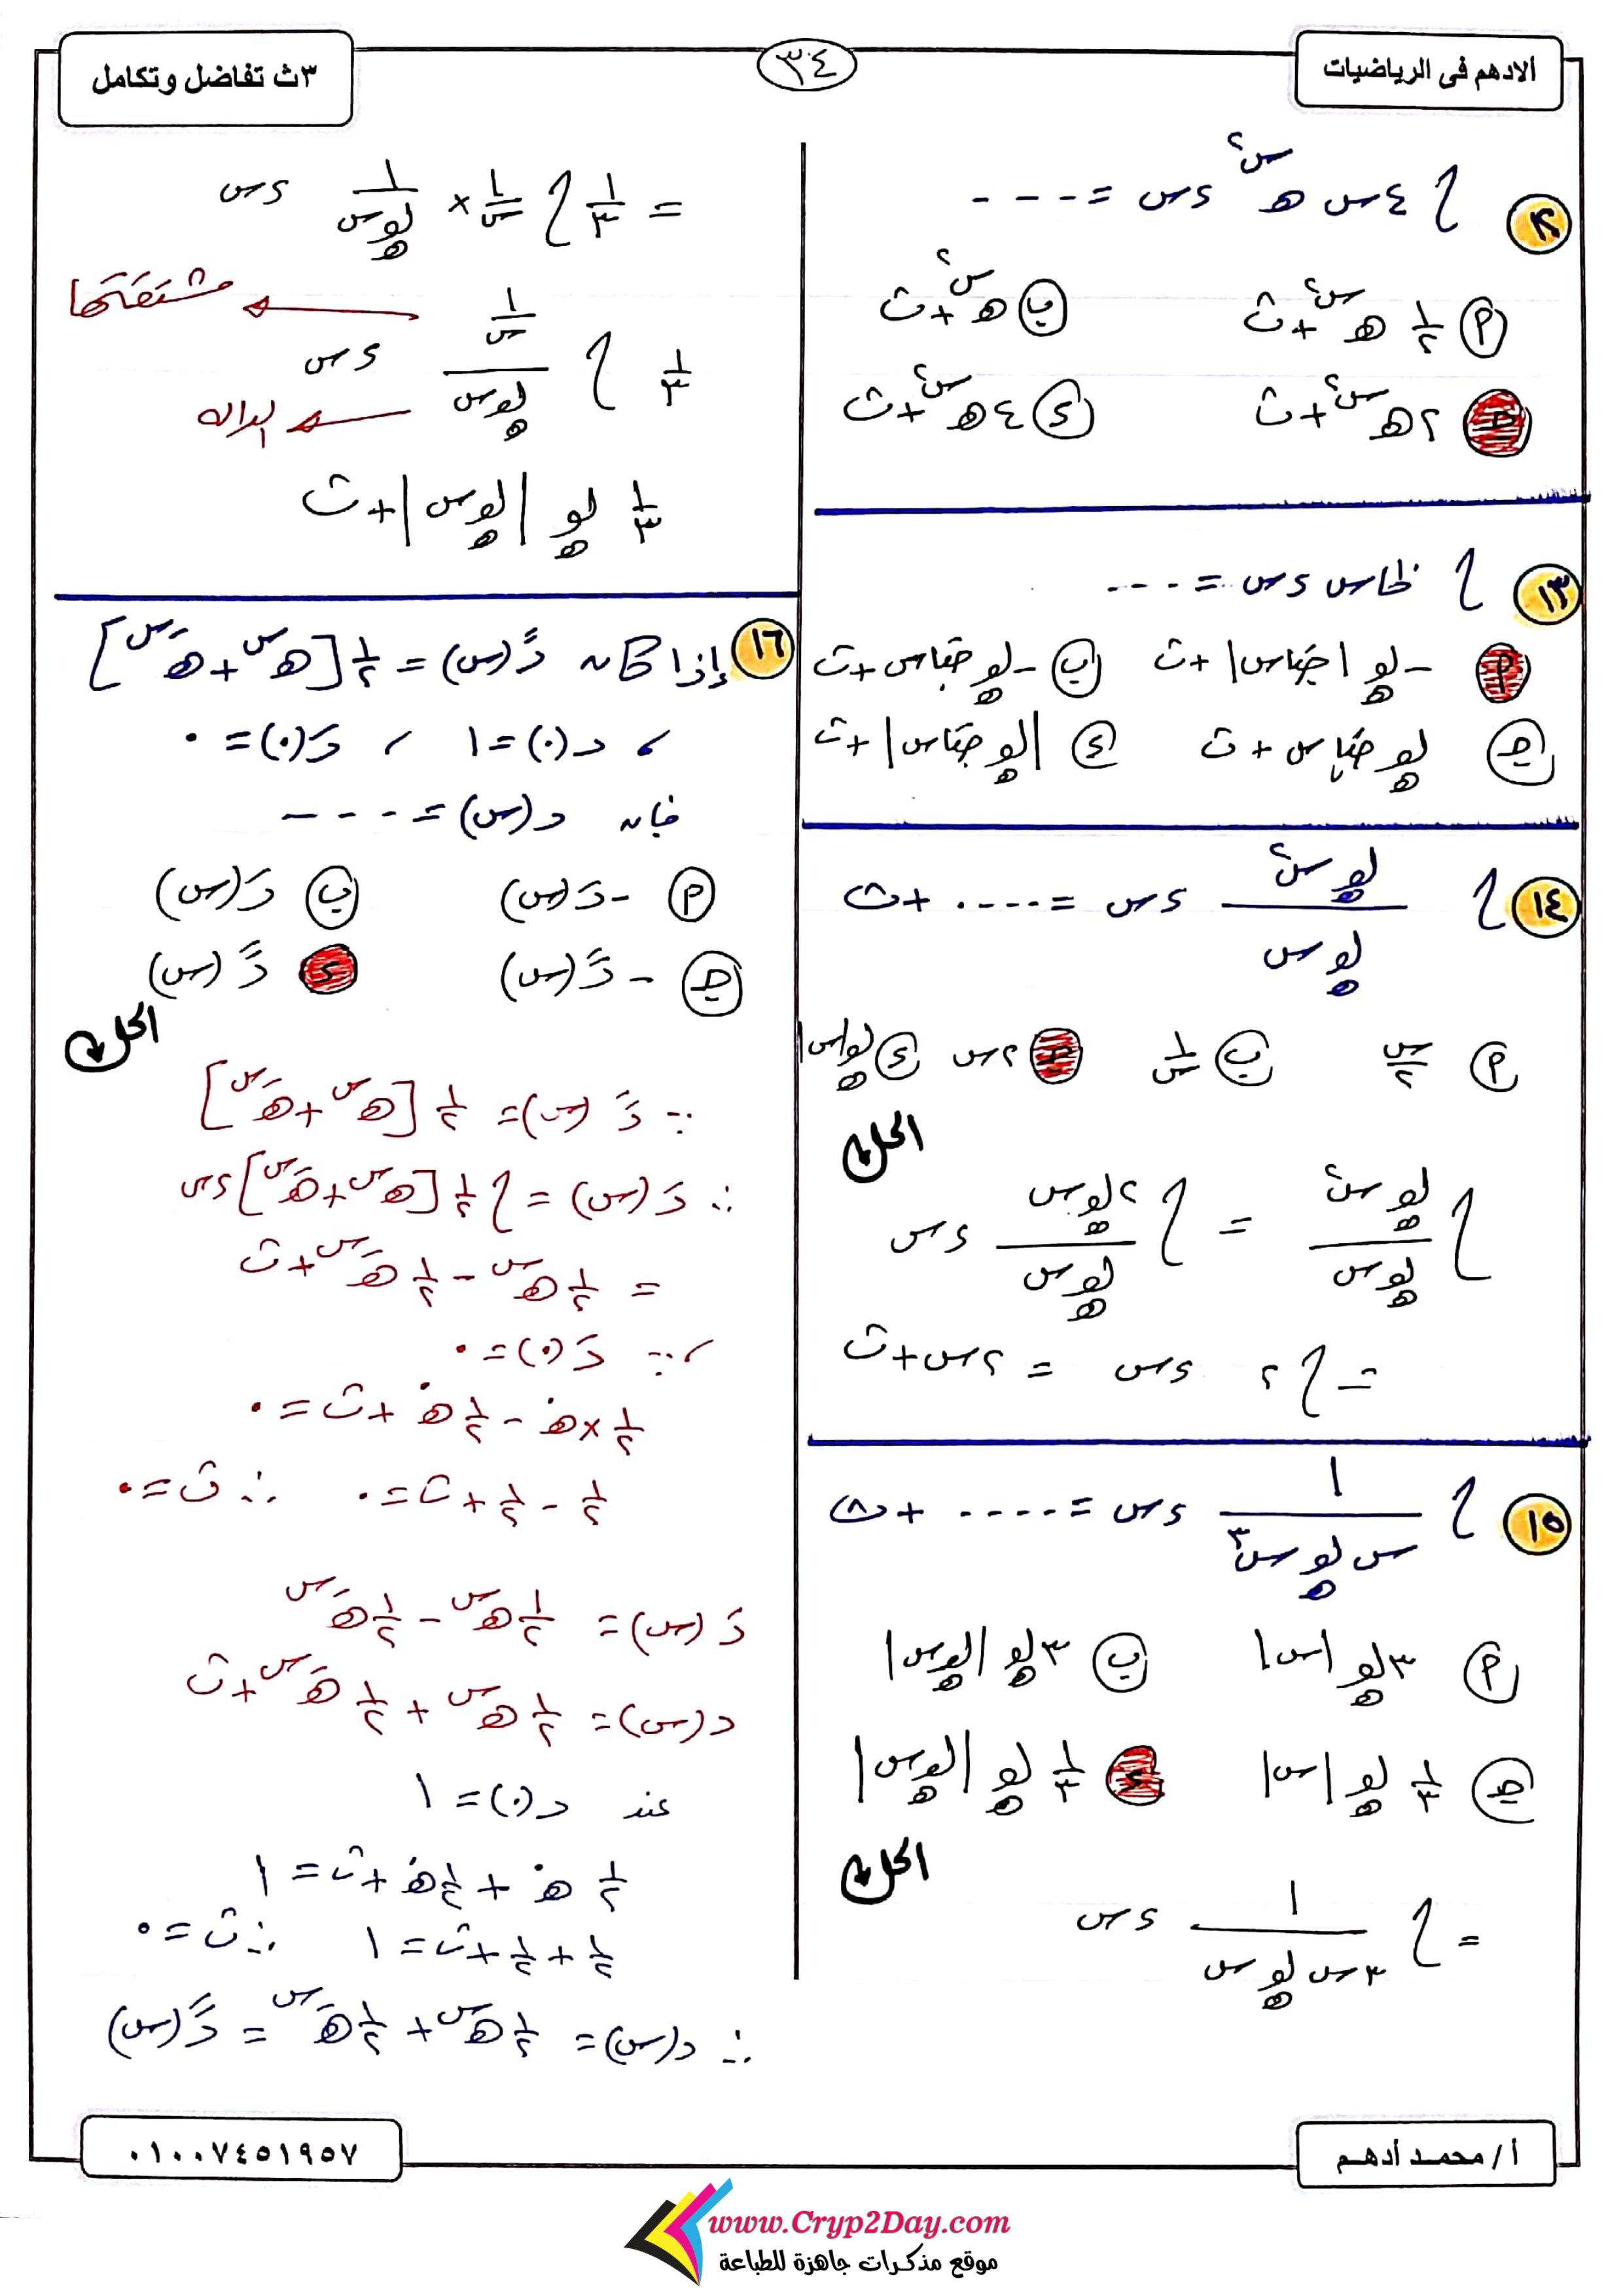 الادهم فى الرياضيات
٣٤
٣ث تفاضل وتكامل
١٢ ∫ ٤س هـ^س² ءس = ----
أ ١/٢ هـ^س² + ث ب هـ^س² + ث
جـ ٢هـ^س² + ث ء ٤هـ^س² + ث
١٣ ∫ ظاس ءس = ----
أ -لوهـ |جتاس| + ث ب -لوهـ جتاس + ث
جـ لوهـ جتاس + ث ء |لوهـ جتاس| + ث
١٤ ∫ لوهـ س² / لوهـ س ءس = ---- + ث
أ س/٢ ب ١/س جـ ٢س ء لوهـ|س|
الحل
∫ لوهـ س² / لوهـ س = ∫ ٢لوهـ س / لوهـ س ءس
= ∫ ٢ ءس = ٢س + ث
١٥ ∫ ١ / س لوهـ س³ ءس = ---- + ث
أ ٣لوهـ |س| ب ٣لوهـ |لوهـ س|
جـ ١/٣ لوهـ |س| ء ١/٣ لوهـ |لوهـ س|
الحل
= ∫ ١ / ٣س لوهـ س ءس
= ١/٣ ∫ ١/س × ١/لوهـ س ءس
١/٣ ∫ ١/س / لوهـ س ءس مشتقتها
الداله
١/٣ لوهـ |لوهـ س| + ث
١٦ إذا كان دً(س) = ١/٢ [هـ^س + هـ^-س]
، د(٠) = ١ ، دَ(٠) = ٠
فإن د(س) = ----
أ -دَ(س) ب دَ(س)
جـ -دً(س) ء دً(س)
الحل
∵ دً(س) = ١/٢ [هـ^س + هـ^-س]
∴ دَ(س) = ∫ ١/٢ [هـ^س + هـ^-س] ءس
= ١/٢ هـ^س - ١/٢ هـ^-س + ث
، ∵ دَ(٠) = ٠
١/٢ × هـ^٠ - ١/٢ هـ^٠ + ث = ٠
١/٢ - ١/٢ + ث = ٠ ∴ ث = ٠
دَ(س) = ١/٢ هـ^س - ١/٢ هـ^-س
د(س) = ١/٢ هـ^س + ١/٢ هـ^-س + ث
عند د(٠) = ١
١/٢ هـ^٠ + ١/٢ هـ^٠ + ث = ١
١/٢ + ١/٢ + ث = ١ ∴ ث = ٠
∴ د(س) = ١/٢ هـ^س + ١/٢ هـ^-س = دً(س)
أ / محمد أدهم
٠١٠٠٧٤٥١٩٥٧
www.Cryp2Day.com
موقع مذكرات جاهزة للطباعة